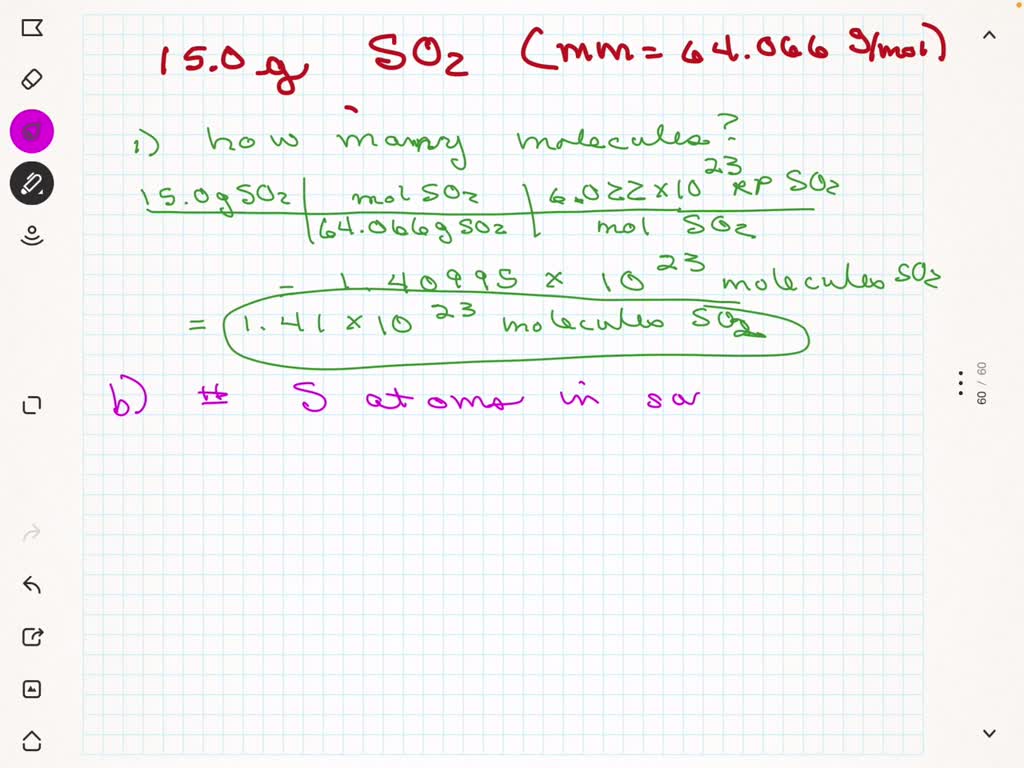 15.0 g SO2 (mm = 64.066 g/mol)
1) how many molecules?
15.0g SO2 | mol SO2 | 6.022 x 10^23 RP SO2
64.066g SO2 | mol SO2
= 1.40995 x 10^23 molecules SO2
= 1.41 x 10^23 molecules SO2
b) # S atoms in sa
60 / 60